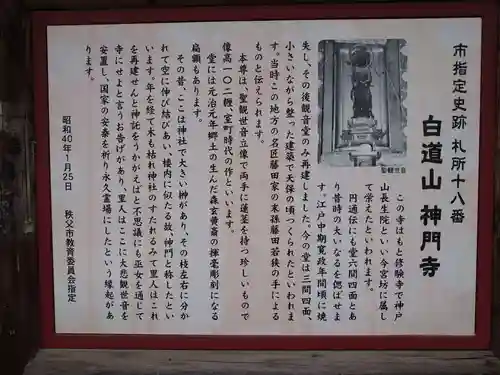 市指定史跡 札所十八番
白道山 神門寺
この寺はもと修験寺で神戸
山長生院といい今宮坊に属し
て栄えたといわれます。
円通伝にも堂六間四面とあ
り昔時の大いなるを偲ばせま
す。江戸中期寛政年間頃に焼
失し、その後観音堂のみ再建しました。今の堂は三間四面、
小さいながら整った建築で天保の頃つくられたといわれま
す。当時この地方の名匠藤田家の末孫藤田若狭の手による
ものと伝えられます。
本尊は、聖観世音立像で両手に蓮茎を持つ珍しいもので
像高一〇二糎、室町時代の作といいます。
堂には元治元年郷土の生んだ森玄黄斎の揮毫彫刻になる
扁額もあります。
その昔、ここは神社で大きい榊があり、その枝左右に分か
れて空に伸び結びあい、楼門に似たる故、神門と称したとい
います。年を経て木も枯れ神社のすたれるみて里人はこれ
を再建せんと神託をうかがえばと不思議にも巫女を通じて
寺にせよと言うお告げがあり、里人はここに大悲観世音を
安置し、国家の安泰を祈り永久霊場にしたという縁起があ
ります。
昭和40年1月25日 秩父市教育委員会指定
聖観世音